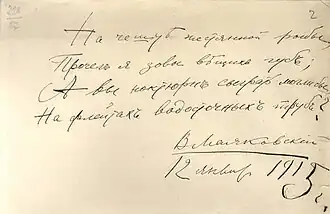 2
На чешуѣ жестянной рыбы
Прочелъ я зовы вѣщихъ губъ;
А вы ноктюрнъ сыграть могли бы
На флейтахъ водосточныхъ трубъ?
В Маяковскій
12 январ 1915 г.